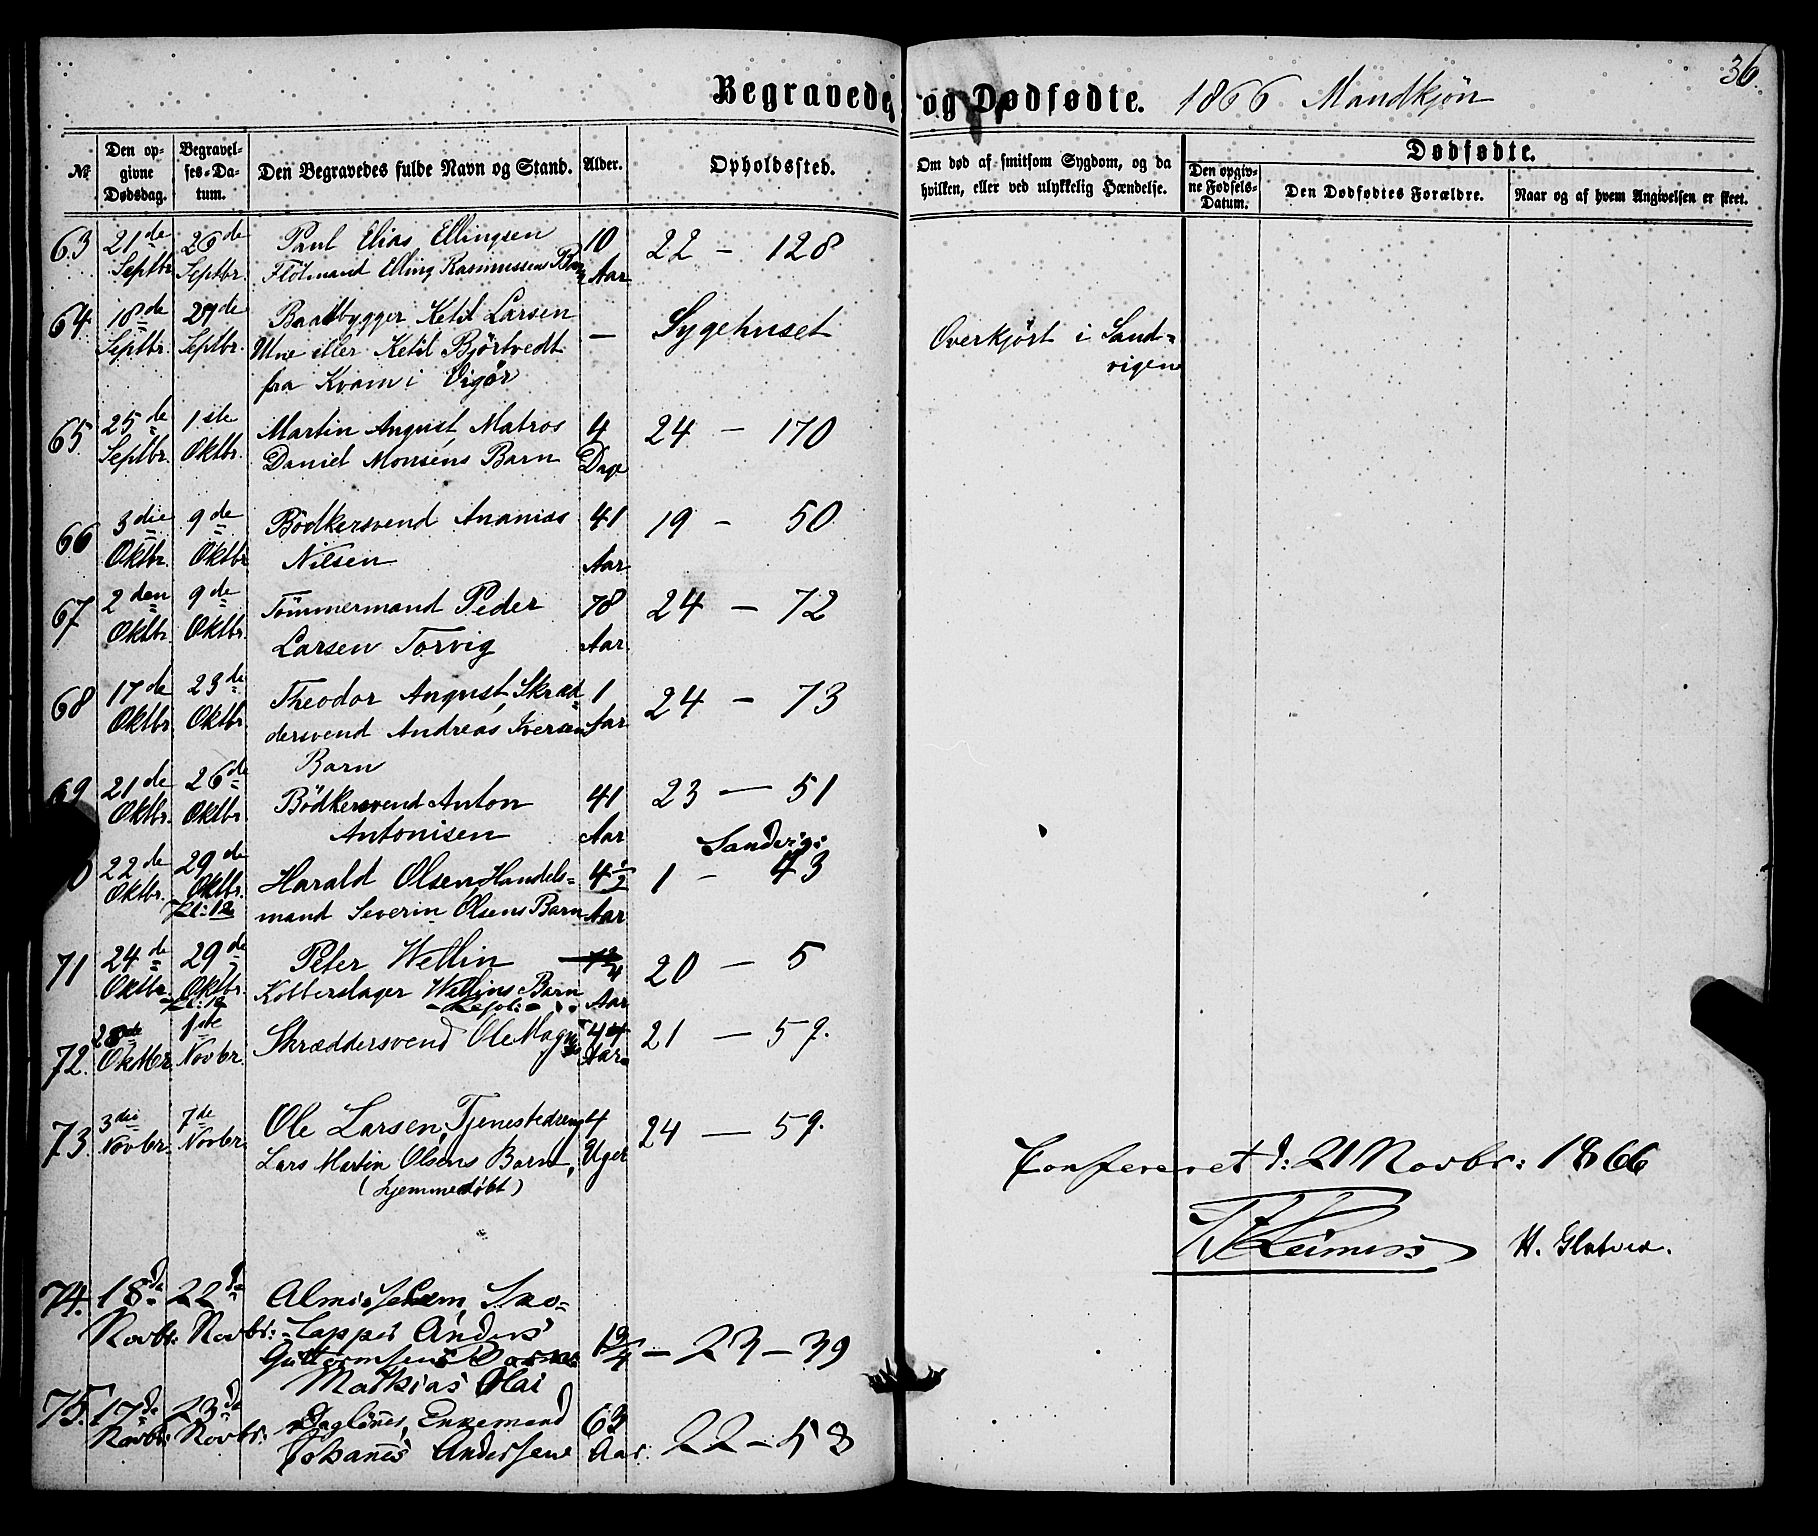 36.
Begravede og Dødfødte. 1866 Mandkjön
№
Den opgivne Dødsdag.
Begravelses-Datum.
Den Begravedes fulde Navn og Stand.
Alder.
Opholdssted.
Om død af smitsom Sygdom, og da hvilken, eller ved ulykkelig Hændelse.
Dødfødte.
Den opgivne Fødsels-Datum.
Den Dødfødtes Forældre.
Naar og af hvem Angivelsen er skeet.
63 21de Septbr. 26de Septbr. Paul Elias, Ellingsen 10 Aar 22 - 128
Flödmand Elling Rasmussens Barn
64 18de Septbr. 27de Septbr. Baadbygger Ketil Larsen — Sygehuset Overkjört i Sand=
Utne eller Ketil Björtvedt vigen
fra Kvam i Vigör
65 25de Septbr. 1ste Oktbr. Martin August, Matros 4 Dage 24 - 170
Daniel Monsens Barn
66 3die Oktbr. 9de Oktbr. Bödkersvend Ananias 41 Aar 19 - 50
Nilsen
67 2den Oktbr. 9de Oktbr. Tömmermand Peder 78 Aar 24 - 72
Larsen Torvig
68 17de Oktbr. 23de Oktbr. Theodor August, Skræd= 1 Aar 24 - 73
dersvend Andreas Iversens
Barn
69 21de Oktbr. 26de Oktbr. Bödkersvend Anton 41 Aar 23 - 51
Antonisen
Sandvig:
0 22de Oktbr. 29de Oktbr. Kl: 12 Harald Olsen, Handels= 4 1/2 Aar 1 - 43
mand Severin Olsens Barn
71 24de Oktbr. 29de Oktbr. Kl: 12 Peter Wellin Aar 20 - 5
Kobberslager Wellins Barn
72. 28de Oktbr. 1ste Novbr. Skræddersvend Ole 44 Aar 21 - 59.
73. 3die Novbr. 7de Novbr. Ole Larsen, Tjenestedreng 4 Uger 24 - 59.
Lars Martin Olsens Barn,
(hjemmedöbt)
Konfereret d: 21 Novbr: 1866
H.
74. 18de Novbr. 22de Novbr: 1 3/4 - 23 - 39
Anders
Guttormsens
Mathias Olai
75. 17de Novbr. 23de Novbr. Daglönner, Enkemand 63 Aar. 22 - 58
Johannes Andersen